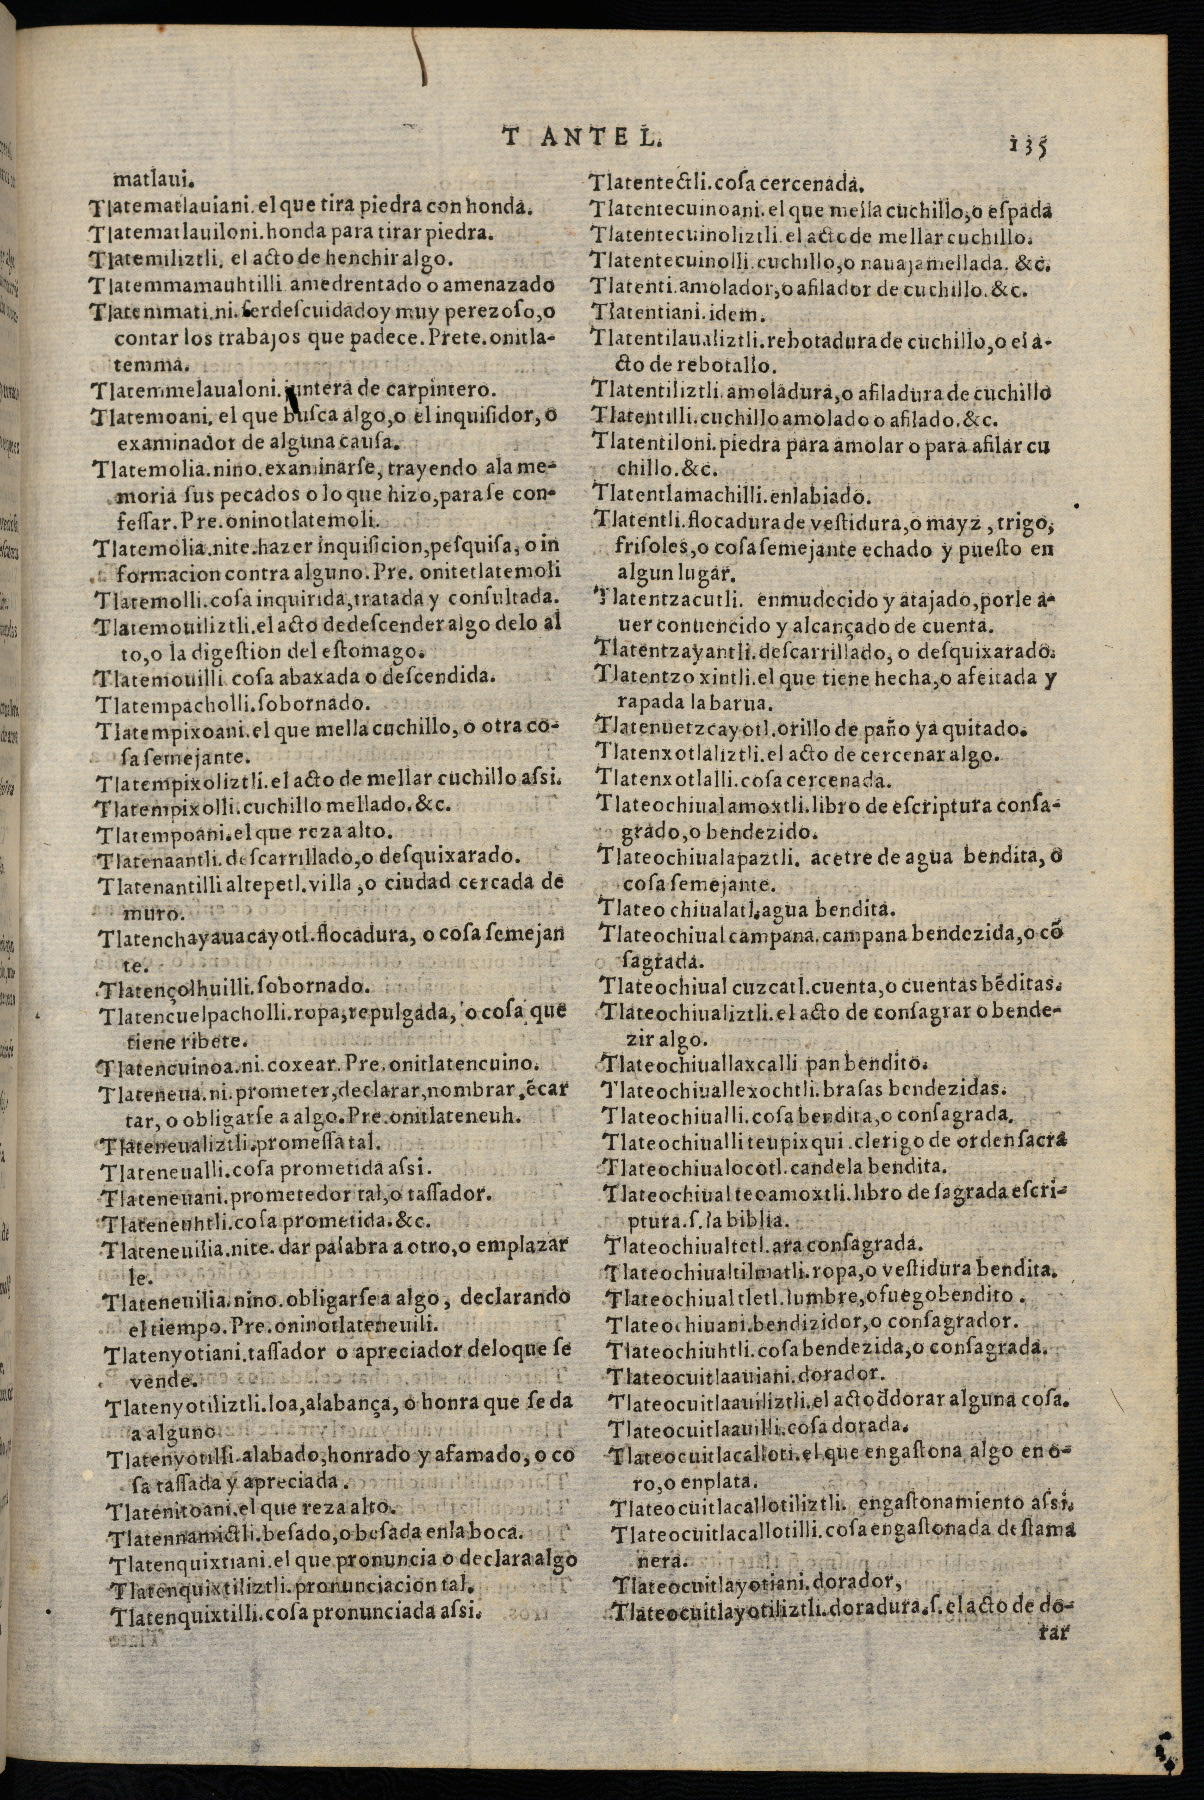 T ANTE L.
135
matlaui.
Tlatematlauiani.el que tira piedra con honda.
Tlatematlauiloni.honda para tirar piedra.
Tlatemiliztli. el acto de henchir algo.
Tlatemmamauhtilli amedrentado o amenazado
Tlatemmati.ni.ſer deſcuidado y muy perezoſo,o
contar los trabajos que padece.Prete.onitla-
temma.
Tlatemmelaualoni.juntera de carpintero.
Tlatemoani. el que buſca algo,o el inquiſidor,o
examinador de alguna cauſa.
Tlatemolia.nino.examinarſe, trayendo ala me-
moria ſus pecados o lo que hizo,para ſe con-
feſſar.Pre.oninotlatemoli.
Tlatemolia.nite.hazer inquiſicion,peſquiſa, o in
formacion contra alguno.Pre. onitetlatemoli
Tlatemolli.coſa inquirida,tratada y conſultada.
Tlatemouiliztli.el acto dedeſcender algo delo al
to,o la digeſtion del eſtomago.
Tlatemouilli coſa abaxada o deſcendida.
Tlatempacholli.ſobornado.
Tlatempixoani.el que mella cuchillo, o otra co-
ſa ſemejante.
Tlatempixoliztli.el acto de mellar cuchillo aſsi.
Tlatempixolli.cuchillo mellado.&c.
Tlatempoani.el que reza alto.
Tlatenaantli.deſcarrillado,o deſquixarado.
Tlatenantilli altepetl.villa ,o ciudad cercada de
muro.
Tlatenchayauacayotl.flocadura, o coſa ſemejan
te.
Tlatençolhuilli.ſobornado.
Tlatencuelpacholli.ropa,repulgada, o coſa que
tiene ribete.
Tlatencuinoa.ni.coxear.Pre.onitlatencuino.
Tlateneua.ni.prometer,declarar,nombrar,ẽcar
tar, o obligarſe a algo.Pre.onitlateneuh.
Tlateneualiztli.promeſſa tal.
Tlateneualli.coſa prometida aſsi.
Tlateneuani.prometedor tal,o taſſador.
Tlateneuhtli.coſa prometida.&c.
Tlateneuilia.nite.dar palabra a otro,o emplazar
le.
Tlateneuilia.nino.obligarſe a algo, declarando
el tiempo.Pre.oninotlateneuili.
Tlatenyotiani.taſſador o apreciador deloque ſe
vende.
Tlatenyotiliztli.loa,alabança, o honra que ſe da
a alguno.
Tlatenyotilli.alabado,honrado y afamado, o co
ſa taſſada y apreciada.
Tlatenitoani.el que reza alto.
Tlatennamictli.beſado,o beſada enla boca.
Tlatenquixtiani.el que pronuncia o declara algo
Tlatenquixtiliztli.pronunciacion tal.
Tlatenquixtilli.coſa pronunciada aſsi.
Tlatentectli.coſa cercenada.
Tlatentecuinoani.el que mella cuchillo,o eſpada
Tlatentecuinoliztli.el acto de mellar cuchillo.
Tlatentecuinolli.cuchillo,o nauaja mellada. &c.
Tlatenti.amolador,o afilador de cuchillo.&c.
Tlatentiani.idem.
Tlatentilaualiztli.rebotadura de cuchillo,o el a-
cto de rebotallo.
Tlatentiliztli.amoladura,o afiladura de cuchillo
Tlatentilli.cuchillo amolado o afilado.&c.
Tlatentiloni.piedra para amolar o para afilar cu
chillo.&c.
Tlatentlamachilli.enlabiado.
Tlatentli.flocadura de veſtidura,o mayz , trigo,
friſoles,o coſa ſemejante echado y pueſto en
algun lugar.
Tlatentzacutli. enmudecido y atajado,porle a-
uer conuencido y alcançado de cuenta.
Tlatentzayantli.deſcarrillado, o deſquixarado.
Tlatentzo xintli.el que tiene hecha,o afeitada y
rapada la barua.
Tlatenuetzcayotl.orillo de paño ya quitado.
Tlatenxotlaliztli.el acto de cercenar algo.
Tlatenxotlalli.coſa cercenada.
Tlateochiualamoxtli.libro de eſcriptura conſa-
grado,o bendezido.
Tlateochiualapaztli. acetre de agua bendita, o
coſa ſemejante.
Tlateo chiualatl.agua bendita.
Tlateochiual campana.campana bendezida,o cõ
ſagrada.
Tlateochiual cuzcatl.cuenta,o cuentas bẽditas.
Tlateochiualiztli.el acto de conſagrar o bende-
zir algo.
Tlateochiuallaxcalli pan bendito.
Tlateochiuallexochtli.braſas bendezidas.
Tlateochiualli.coſa bendita,o conſagrada.
Tlateochiualli teupixqui .clerigo de orden ſacra
Tlateochiualocotl.candela bendita.
Tlateochiual teoamoxtli.libro de ſagrada eſcri-
ptura.ſ.la biblia.
Tlateochiualtetl.ara conſagrada.
Tlateochiualtilmatli.ropa,o veſtidura bendita.
Tlateochiual tletl.lumbre,o fuego bendito .
Tlateochiuani.bendizidor,o conſagrador.
Tlateochiuhtli.coſa bendezida,o conſagrada.
Tlateocuitlaauiani.dorador.
Tlateocuitlaauiliztli.el acto đ dorar alguna coſa.
Tlateocuitlaauilli.coſa dorada.
Tlateocuitlacalloti.el que engaſtona algo en o-
ro,o en plata.
Tlateocuitlacallotiliztli. engaſtonamiento aſsi.
Tlateocuitlacallotilli.coſa engaſtonada deſtama
nera.
Tlateocuitlayotiani.dorador,
Tlateocuitlayotiliztli.doradura.ſ.el acto de do-
rar